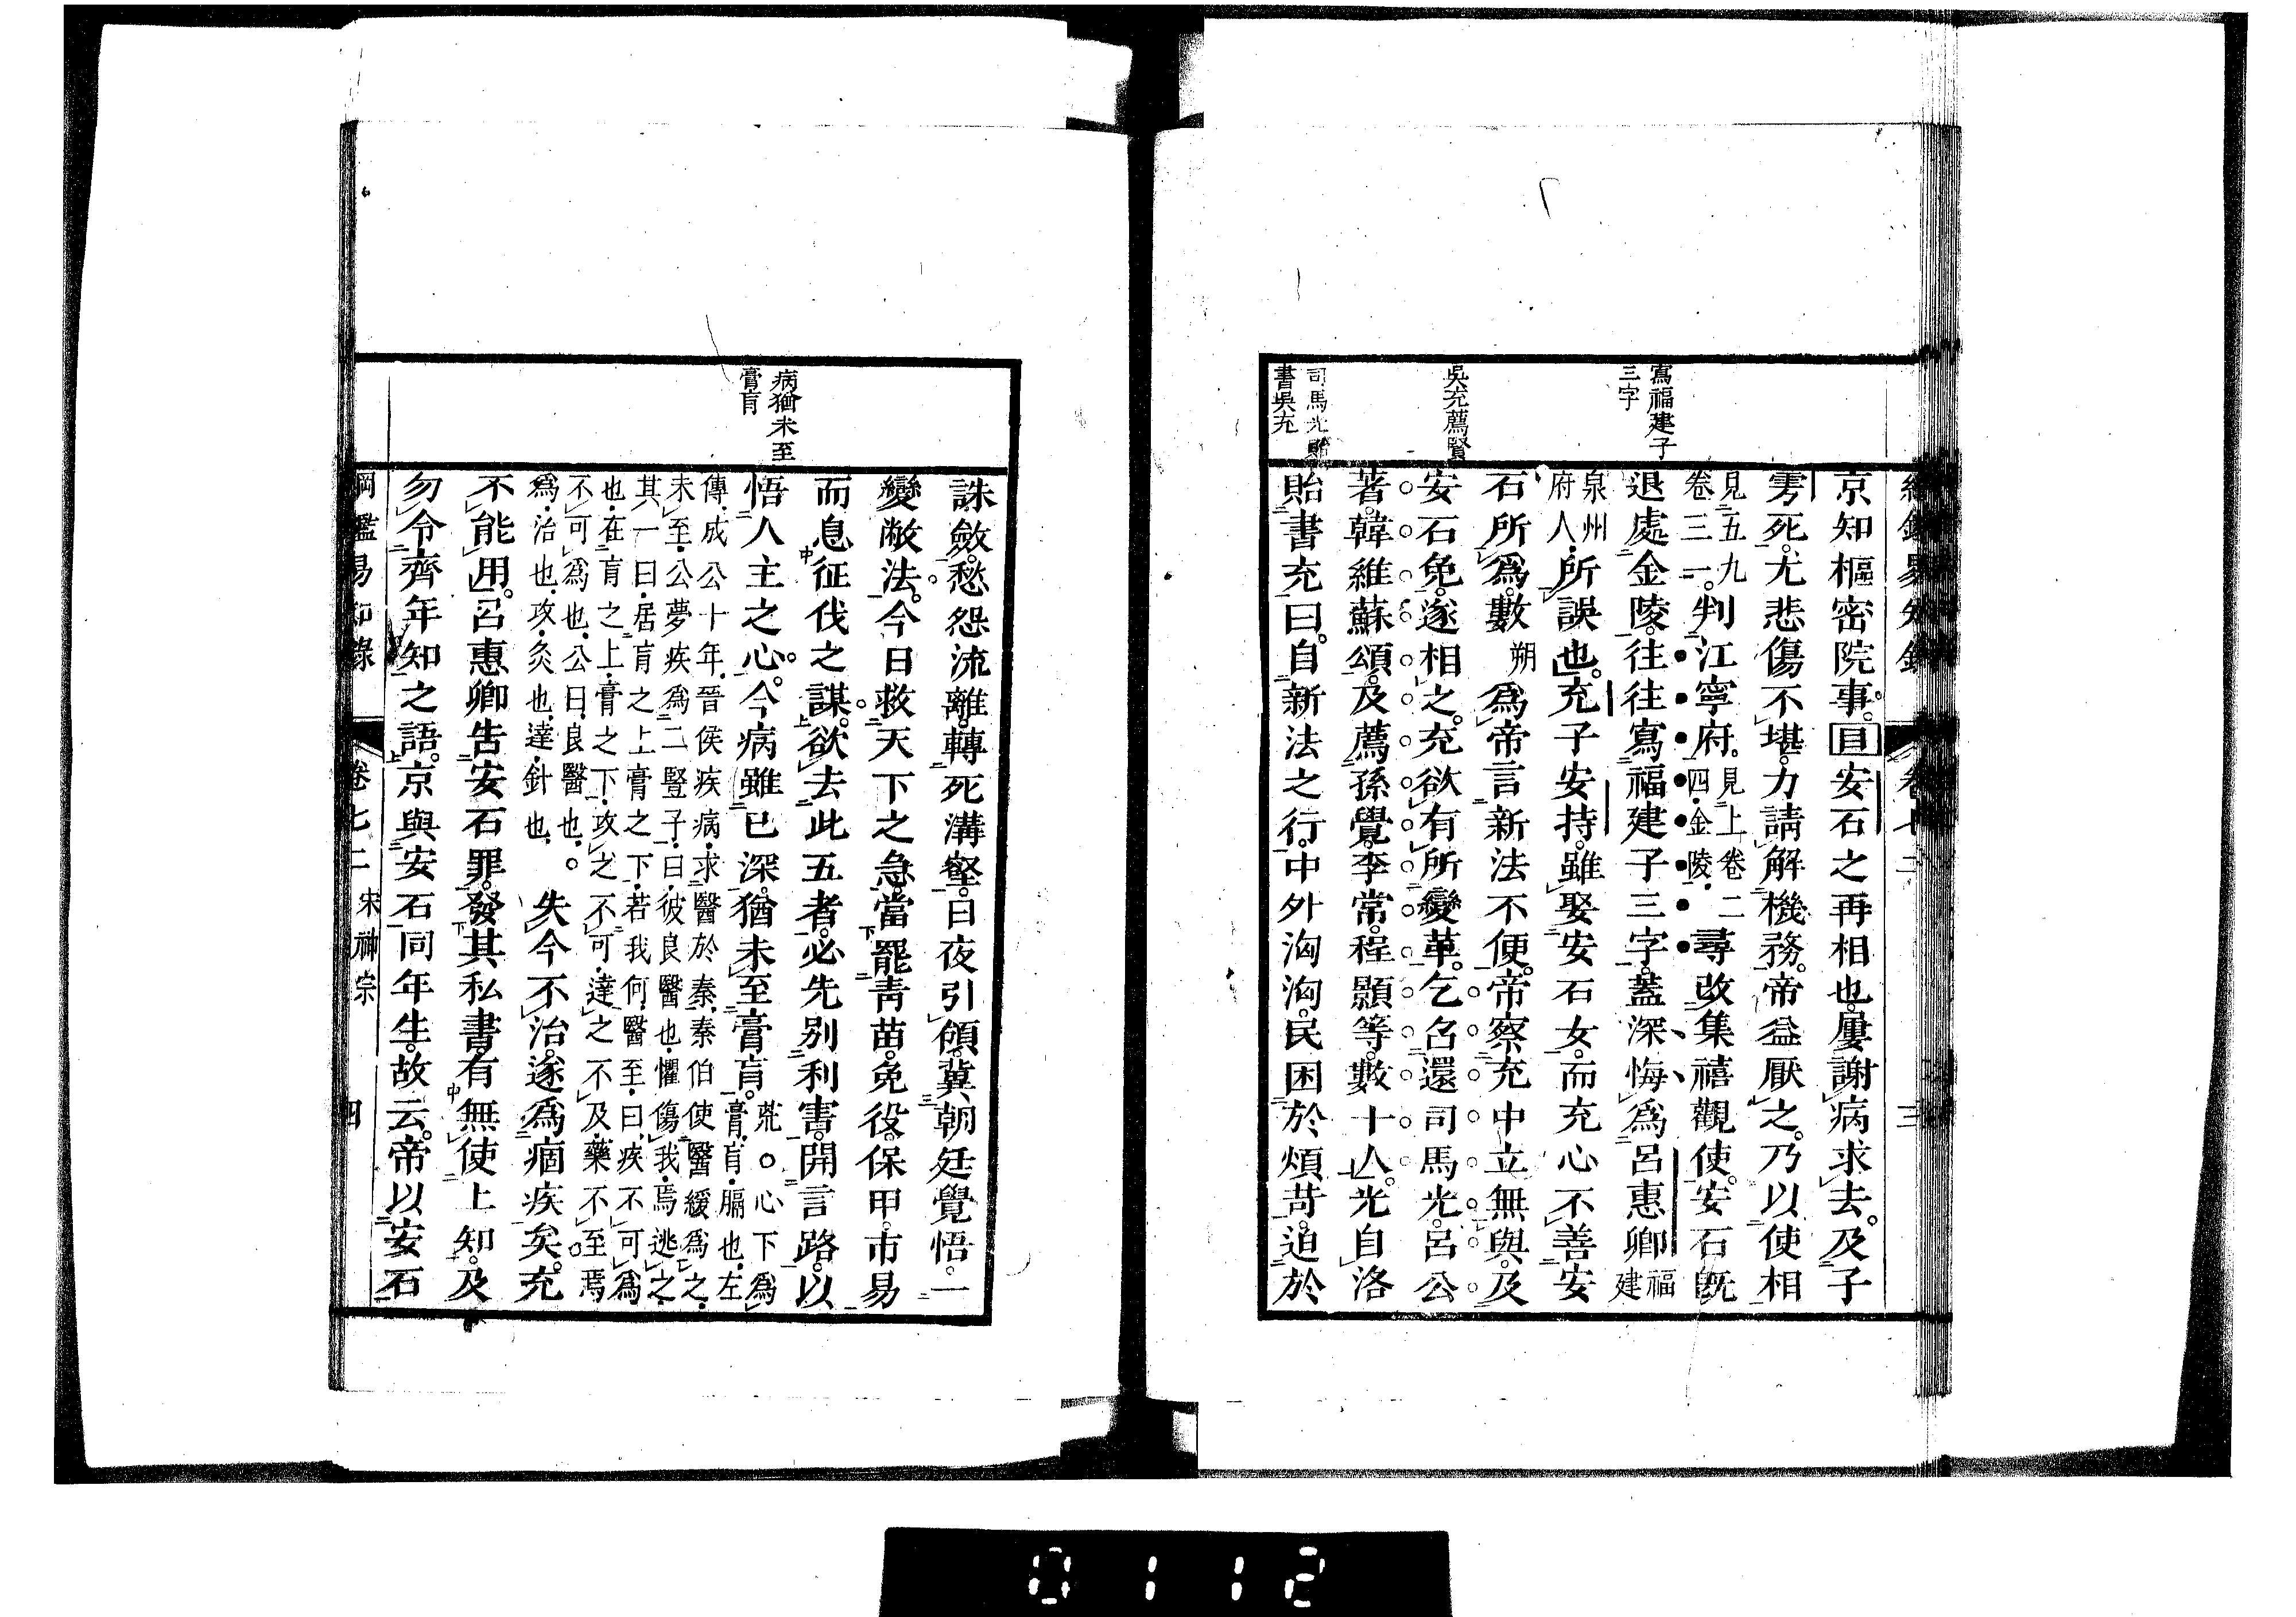 寫福建子
三字
吳充薦賢
司馬光貽
書吳充
京知樞密院事。目安石之再相也。屢謝病求去。及子
雱死。尤悲傷不堪。力請解機務。帝益厭之。乃以使相
見五九
卷三一。判江寧府。見上卷二
四。金陵。二尋改集禧觀使。安石旣
退處金陵。往往寫福建子三字。蓋深悔爲呂惠卿福
建
泉州
府人。所誤也。充子安持。雖娶安石女。而充心不善安
石所爲。數朔爲帝言新法不便。帝察充中立無與。及
安石免。遂相之。充欲有所變革。乞召還司馬光。呂公
著。韓維蘇頌。及薦孫覺。李常。程顥等。數十人。光自洛
貽書充曰。自新法之行。中外洶洶。民困於煩苛。迫於
病猶未至
膏肓
誅斂。愁怨流離。轉死溝壑。日夜引領。冀朝廷覺悟。一
變敝法。今日救天下之急。當罷靑苗。免役。保甲。市易
而息征伐之謀。欲去此五者。必先別利害。開言路。以
悟人主之心。今病雖已深。猶未至膏肓。荒。○心下爲
膏。肓。膈也。左
傳。成公十年。晉侯疾病。求醫於秦。秦伯使醫緩爲之。
未至。公夢疾爲二豎子。曰。彼良醫也。懼傷我。焉逃之。
其一曰。居肓之上膏之下。若我何。醫至。曰。疾不可爲
也。在肓之上。膏之下。攻之不可。達之不及。藥不至焉
不可爲也。公曰。良醫也。○
爲。治也。攻。灸也。達。針也。
失今不治。遂爲痼疾矣。充
不能用。呂惠卿告安石罪。發其私書。有無使上知。及
勿令齊年知之語。京與安石同年生。故云。帝以安石
綱鑑易知錄 卷七二 宋神宗 四
0112